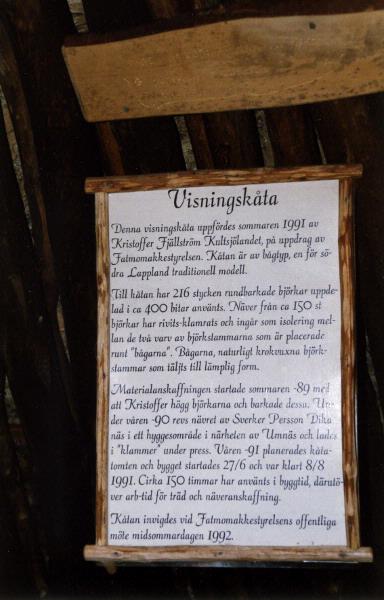 Visningskåta
Denna visningskåta uppfördes sommaren 1991 av
Kristoffer Fjällström Kultsjölandet, på uppdrag av
Fatmomakkestyrelsen. Kåtan är av bågtyp, en för sö-
dra Lappland traditionell modell.
Till kåtan har 216 stycken rundbarkade björkar uppde-
lad i ca 400 bitar använts. Näver från ca 150 st
björkar har rivits-klamrats och ingår som isolering mel-
lan de två varv av björkstammarna som är placerade
runt "bågarna". Bågarna, naturligt krokvuxna björk-
stammar som täljts till lämplig form.
Materialanskaffningen startade sommaren -89 med
att Kristoffer högg björkarna och barkade dessa. Un-
der våren -90 revs nävret av Sverker Persson Dika-
näs i ett hyggesområde i närheten av Umnäs och lades
i "klammer" under press. Våren -91 planerades kåta-
tomten och bygget startades 27/6 och var klart 8/8
1991. Cirka 150 timmar har använts i byggtid, därutö-
ver arb-tid för träd och näveranskaffning.
Kåtan invigdes vid Fatmomakkestyrelsens offentliga
möte midsommardagen 1992.